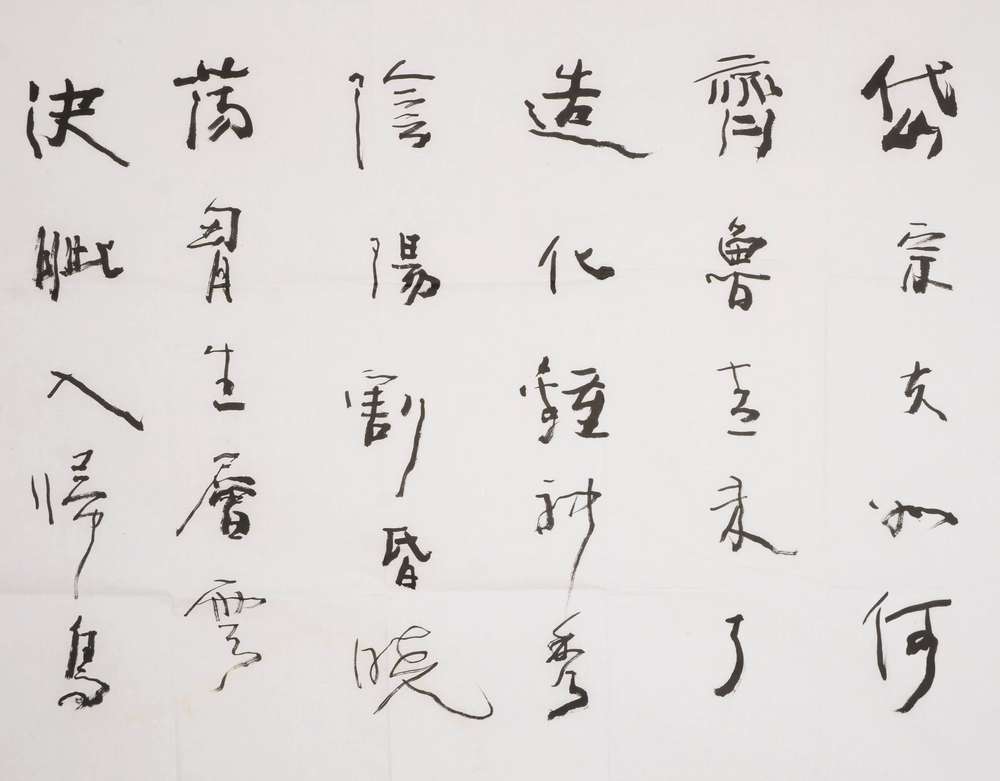 岱宗夫如何
齊魯青未了
造化鍾神秀
陰陽割昏曉
蕩胷生層雲
決眦入歸鳥